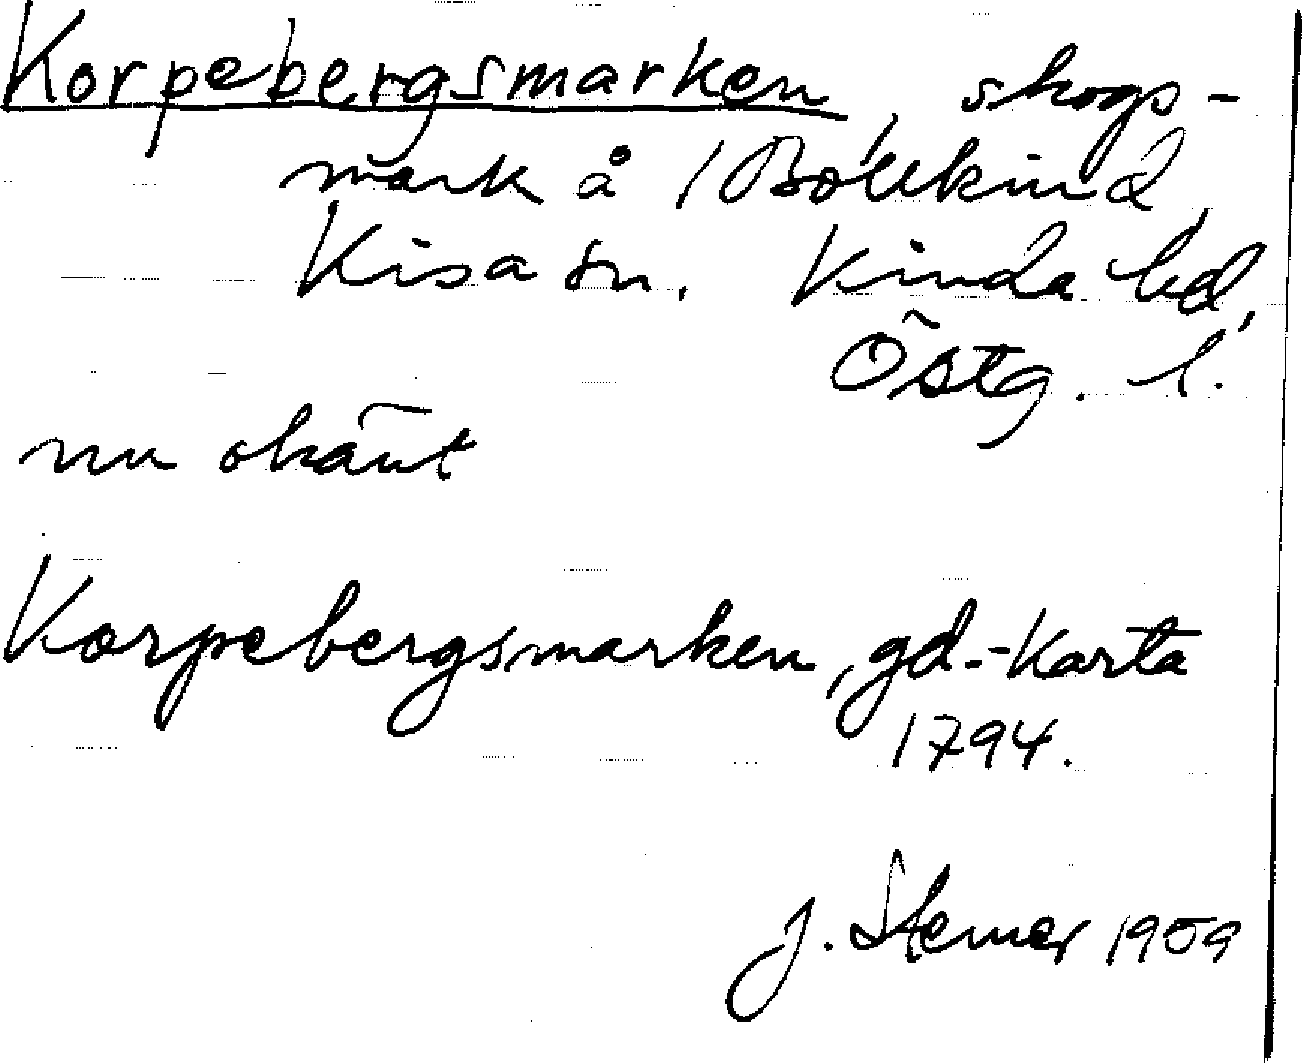 Korpebergsmarken, skogs-
mark å 1 Bollekind,
Kisa sn. Kinda hd,
Östg. l.
nu okänt
Korpebergsmarken, gd.-Karta
1794.
J. Sterner 1959